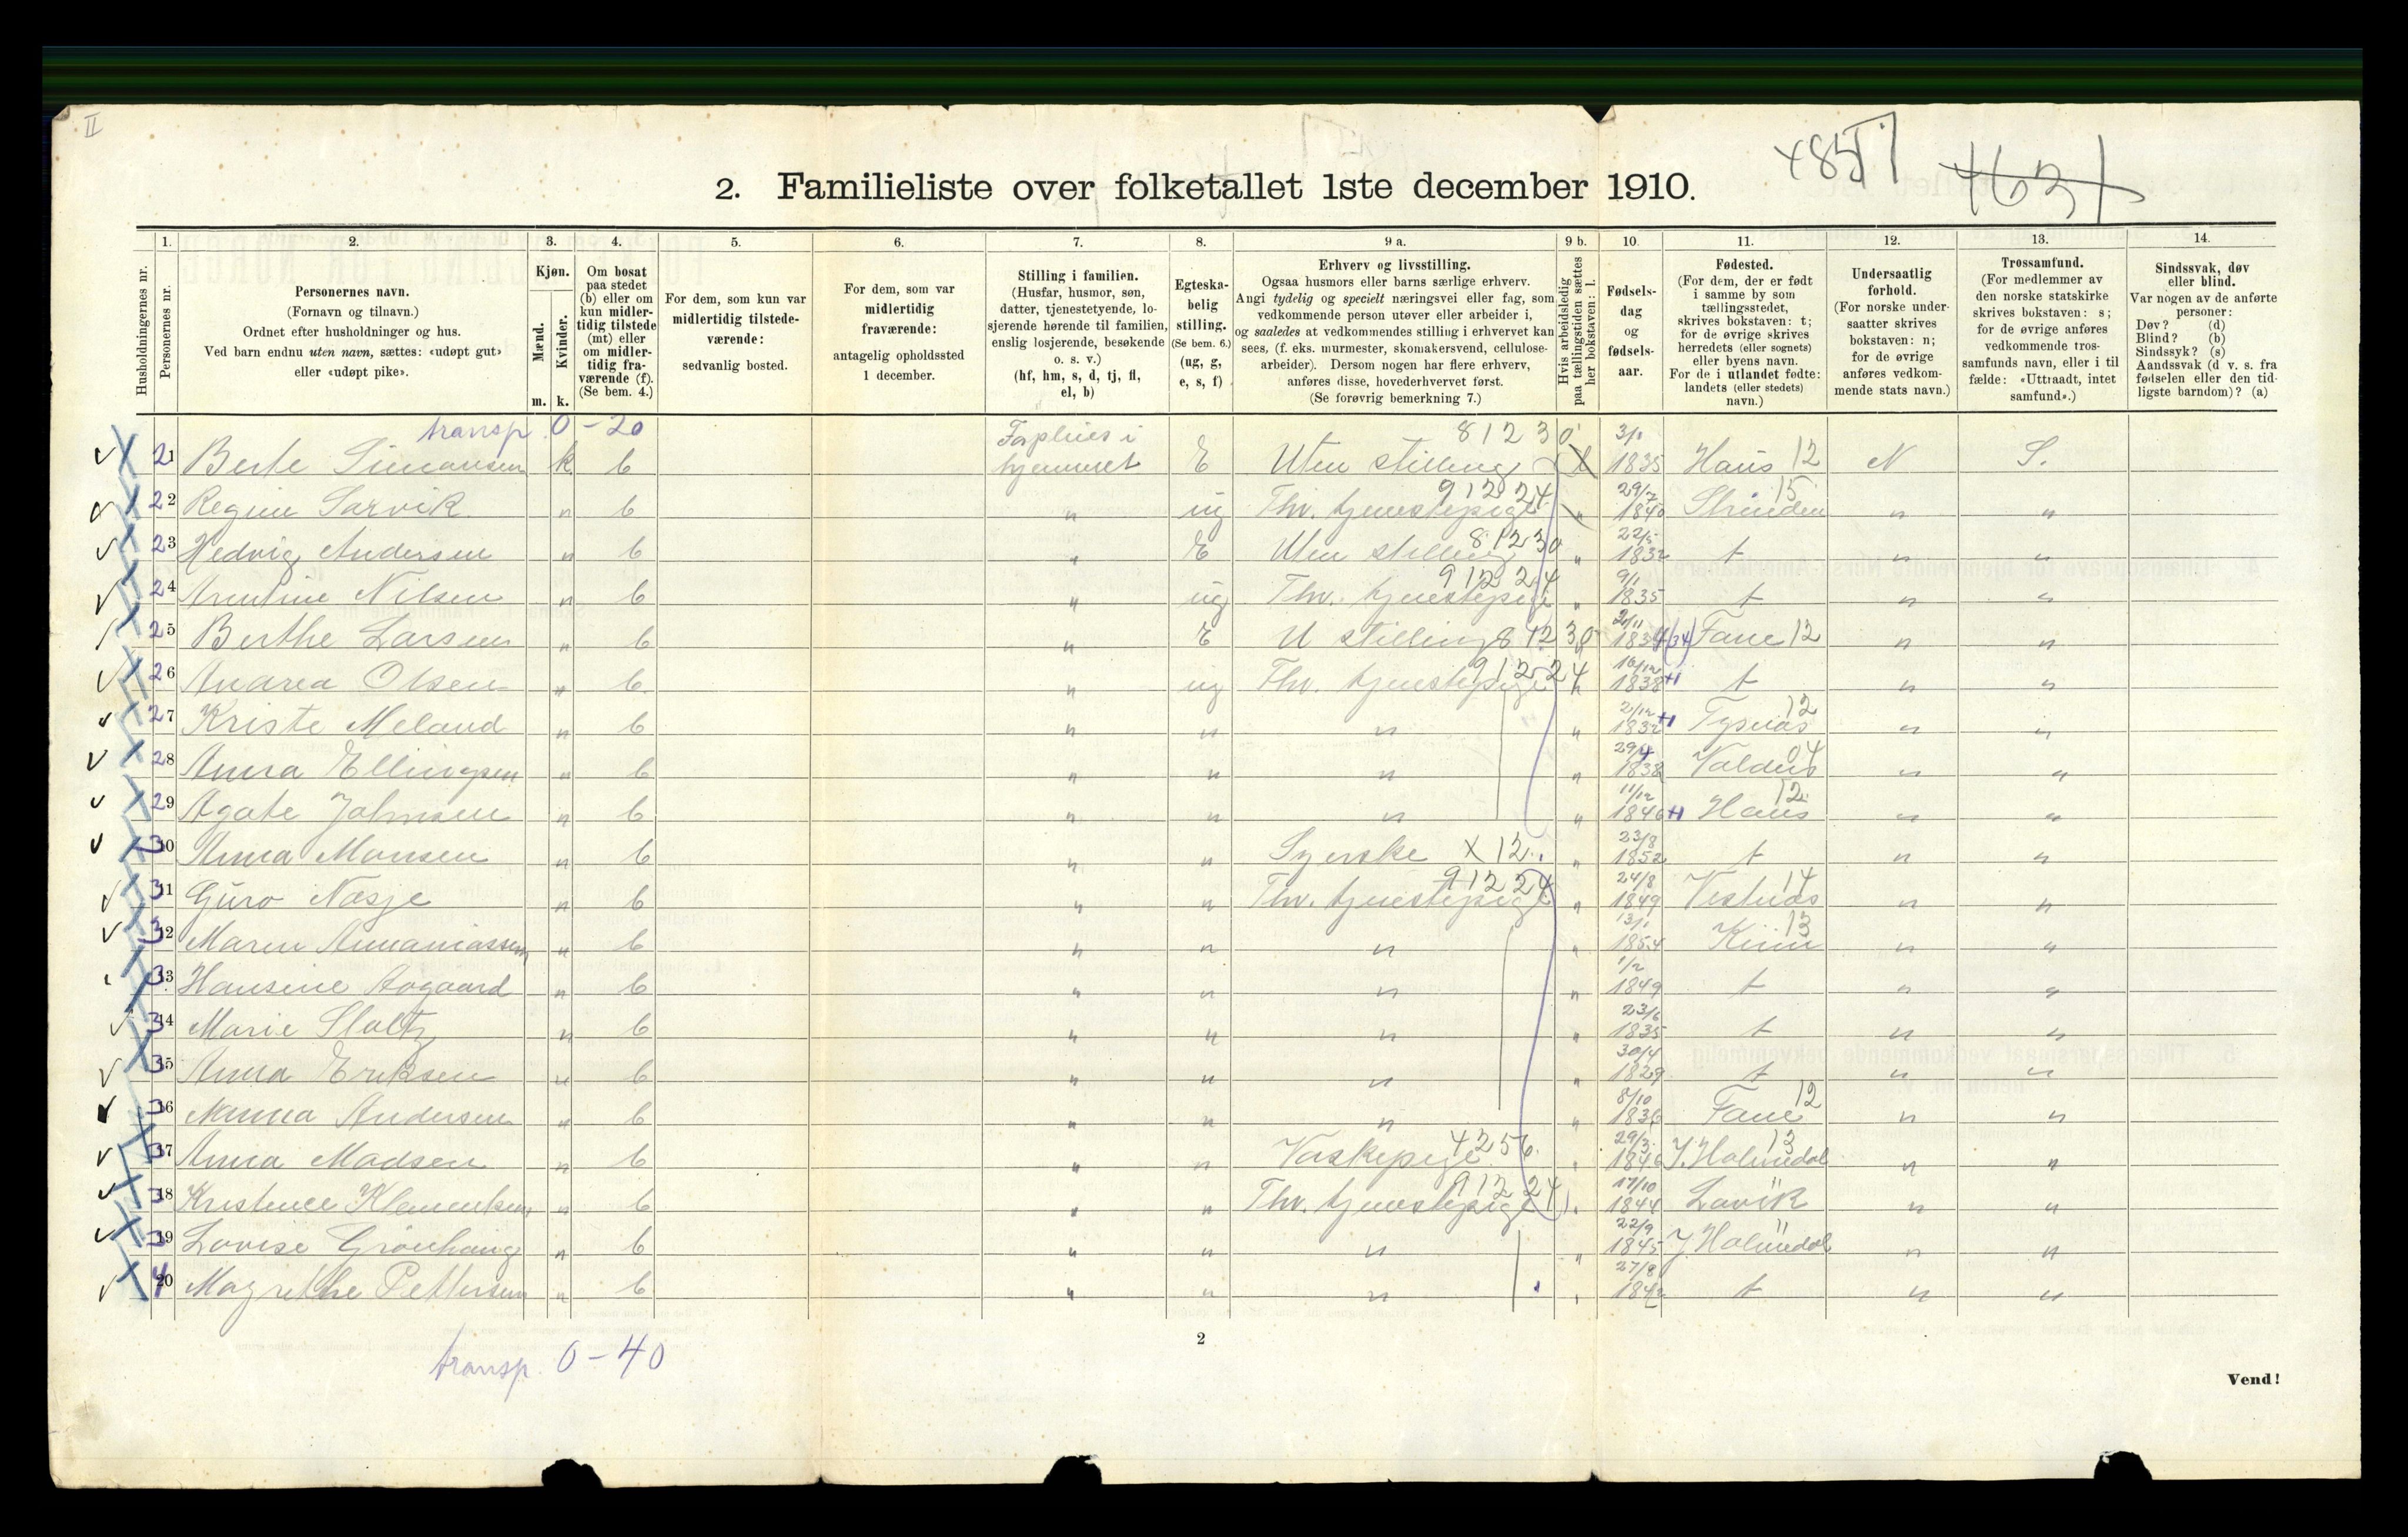 II
4857
4631
2. Familieliste over folketallet 1ste december 1910.
1. 2. 3. 4. 5. 6. 7. 8. 9 a. 9 b. 10. 11. 12. 13. 14.
Husholdningernes nr.
Personernes nr.
Personernes navn.
(Fornavn og tilnavn.)
Ordnet efter husholdninger og hus.
Ved barn endnu uten navn, sættes: «udøpt gut»
eller «udøpt pike».
Kjøn.
Mænd.
Kvinder.
m. k.
Om bosat
paa stedet
(b) eller om
kun midler-
tidig tilstede
(mt) eller
om midler-
tidig fra-
værende (f).
(Se bem. 4.)
For dem, som kun var
midlertidig tilstede-
værende:
sedvanlig bosted.
For dem, som var
midlertidig
fraværende:
antagelig opholdssted
1 december.
Stilling i familien.
(Husfar, husmor, søn,
datter, tjenestetyende, lo-
sjerende hørende til familien,
enslig losjerende, besøkende
o. s. v.)
(hf, hm, s, d, tj, fl,
el, b)
Egteska-
belig
stilling.
(Se bem. 6.)
(ug, g,
e, s, f)
Erhverv og livsstilling.
Ogsaa husmors eller barns særlige erhverv.
Angi tydelig og specielt næringsvei eller fag, som
vedkommende person utøver eller arbeider i,
og saaledes at vedkommendes stilling i erhvervet kan
sees, (f. eks. murmester, skomakersvend, cellulose-
arbeider). Dersom nogen har flere erhverv,
anføres disse, hovederhvervet først.
(Se forøvrig bemerkning 7.)
Hvis arbeidsledig
paa tællingstiden sættes
her bokstaven: l.
Fødsels-
dag
og
fødsels-
aar.
Fødested.
(For dem, der er født
i samme by som
tællingsstedet,
skrives bokstaven: t;
for de øvrige skrives
herredets (eller sognets)
eller byens navn.
For de i utlandet fødte:
landets (eller stedets)
navn.)
Undersaatlig
forhold.
(For norske under-
saatter skrives
bokstaven: n;
for de øvrige
anføres vedkom-
mende stats navn.)
Trossamfund.
(For medlemmer av
den norske statskirke
skrives bokstaven: s;
for de øvrige anføres
vedkommende tros-
samfunds navn, eller i til
fælde: «Uttraadt, intet
samfund».)
Sindssvak, døv
eller blind.
Var nogen av de anførte
personer:
Døv? (d)
Blind? (b)
Sindssyk? (s)
Aandssvak (d. v. s. fra
fødselen eller den tid-
ligste barndom)? (a)
transp. 0 - 20
21 Berte Simonsen k b Forpleies i hjemmet E Uten stilling 81230 3/1 1835 Haus 12 N S.
22 Regine Sarvik " b " ug Thv. tjenestepige 91224 " 29/7 1840 Strinden 15 " "
23 Hedvig Andersen " b " E Uten stilling 81230 " 22/5 1832 t " "
24 Arentine Nilsen " b " ug Thv. tjenestepige 91224 " 9/1 1835 t " "
25 Berthe Larsen " b " E U stilling 81230 2/11 1834 (34) Fane 12 " "
26 Andrea Olsen " b " ug Thv. tjenestepige 91224 " 16/12 1838 t " "
27 Kriste Meland " b " " " " 2/12 1832 Tysnæs 12 " "
28 Anna Ellingsen " b " " " " 29/4 1838 Valders 04 " "
29 Agate Johnsen " b " " " " 11/12 1846 Haus 12 " "
30 Anna Monsen " b " " Syerske X12 " 23/8 1852 t " "
31 Guro Næsje " b " " Thv. tjenestepige 91224 " 24/8 1849 Vestnæs 14 " "
32 Maren Annaniassen " b " " " " 13/1 1854 Kinn 13 " "
33 Hansine Aagaard " b " " " " 1/2 1849 t " "
34 Marie Stoltz " b " " " " 23/6 1835 t " "
35 Anna Eriksen " b " " " " 30/4 1829 t " "
36 Nanna Andersen " b " " " " 8/10 1836 Fane 12 " "
37 Anna Madsen " b " " Vaskepige 4256 " 29/3 1846 Y. Holmedal 13 " "
38 Kristence Klementsen " b " " Thv. tjenestepige 91224 " 17/10 1844 Lavik " "
39 Lovise Grönhaug " b " " " " 22/9 1845 Y. Holmedal " " "
40 Magrethe Pettersen " b " " " " 27/8 1842 t " "
transp. 0 - 40
2
Vend!